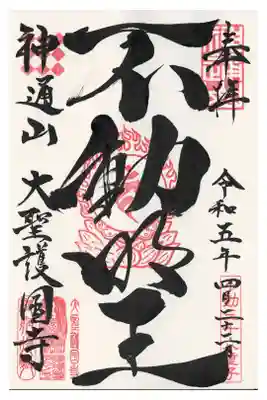 奉拝
令和五年四月二十二日
不動明王
神通山 大聖護國寺